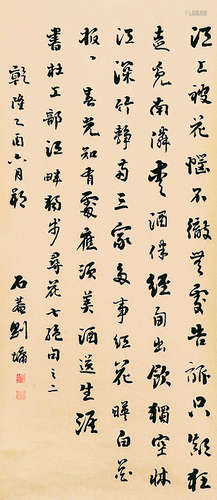 江上被花惱不徹無處告訴只顛狂
走覓南鄰愛酒伴經旬出飲獨空牀
江深竹靜兩三家多事紅花暎白花
報答春光知有處應須美酒送生涯
書杜工部江畔獨步尋花七絕句之二
乾隆乙酉六月朔
石菴劉墉